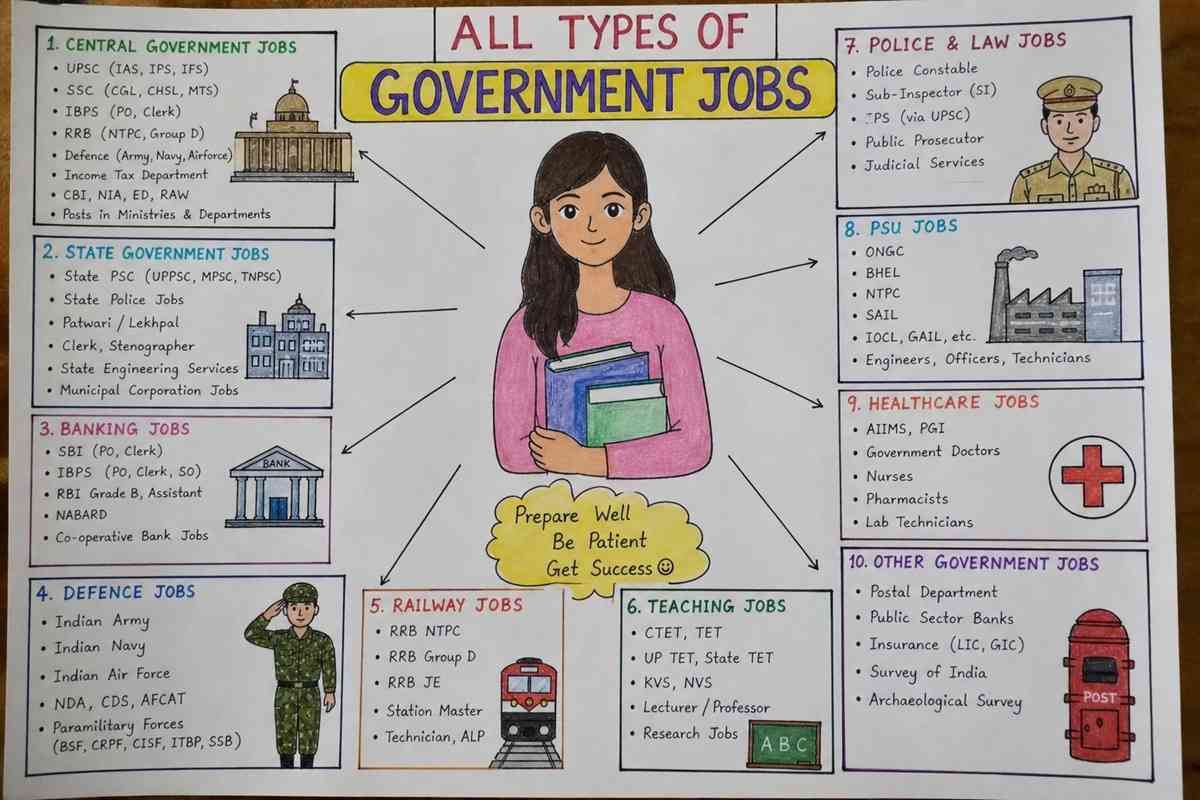 ALL TYPES OF
GOVERNMENT JOBS
1. CENTRAL GOVERNMENT JOBS
• UPSC (IAS, IPS, IFS)
• SSC (CGL, CHSL, MTS)
• IBPS (PO, Clerk)
• RRB (NTPC, Group D)
• Defence (Army, Navy, Airforce)
• Income Tax Department
• CBI, NIA, ED, RAW
• Posts in Ministries & Departments
2. STATE GOVERNMENT JOBS
• State PSC (UPPSC, MPSC, TNPSC)
• State Police Jobs
• Patwari / Lekhpal
• Clerk, Stenographer
• State Engineering Services
• Municipal Corporation Jobs
3. BANKING JOBS
• SBI (PO, Clerk)
• IBPS (PO, Clerk, SO)
• RBI Grade B, Assistant
• NABARD
• Co-operative Bank Jobs
BANK
4. DEFENCE JOBS
• Indian Army
• Indian Navy
• Indian Air Force
• NDA, CDS, AFCAT
• Paramilitary Forces
(BSF, CRPF, CISF, ITBP, SSB)
Prepare Well
Be Patient
Get Success ☺
5. RAILWAY JOBS
• RRB NTPC
• RRB Group D
• RRB JE
• Station Master
• Technician, ALP
6. TEACHING JOBS
• CTET, TET
• UP TET, State TET
• KVS, NVS
• Lecturer / Professor
• Research Jobs
A B C
7. POLICE & LAW JOBS
• Police Constable
• Sub-Inspector (SI)
• IPS (via UPSC)
• Public Prosecutor
• Judicial Services
8. PSU JOBS
• ONGC
• BHEL
• NTPC
• SAIL
• IOCL, GAIL, etc.
• Engineers, Officers, Technicians
9. HEALTHCARE JOBS
• AIIMS, PGI
• Government Doctors
• Nurses
• Pharmacists
• Lab Technicians
10. OTHER GOVERNMENT JOBS
• Postal Department
• Public Sector Banks
• Insurance (LIC, GIC)
• Survey of India
• Archaeological Survey
POST